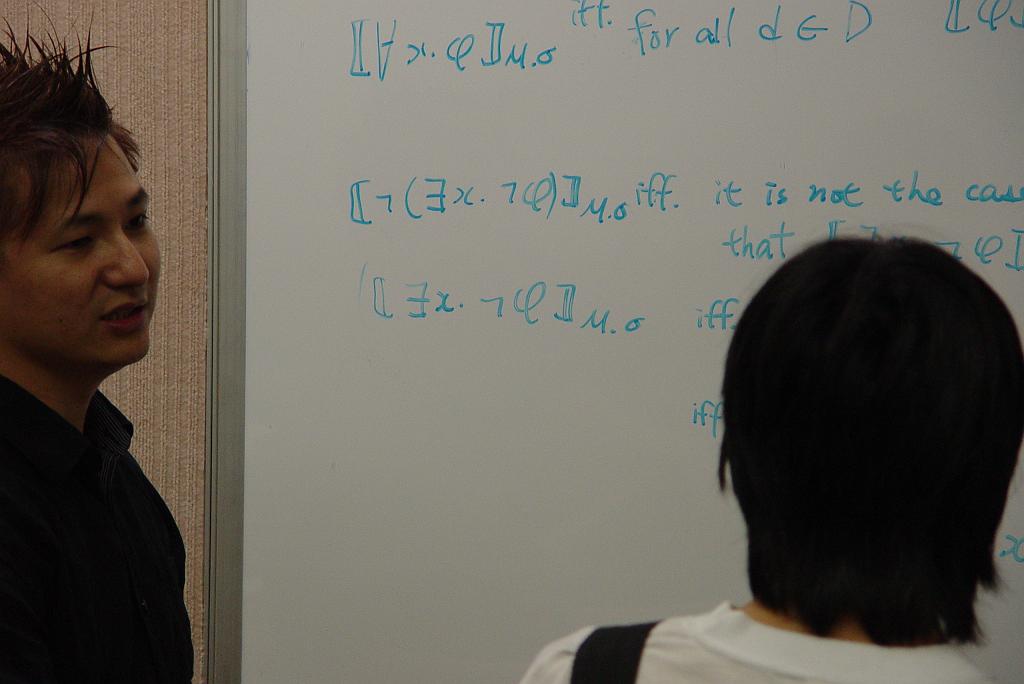 ⟦∀x.φ⟧M.σ iff. for all d ∈ D ⟦φ
⟦¬(∃x.¬φ)⟧M.σ iff. it is not the case
that ¬φ⟧
⟦∃x.¬φ⟧M.σ iff.
iff
x